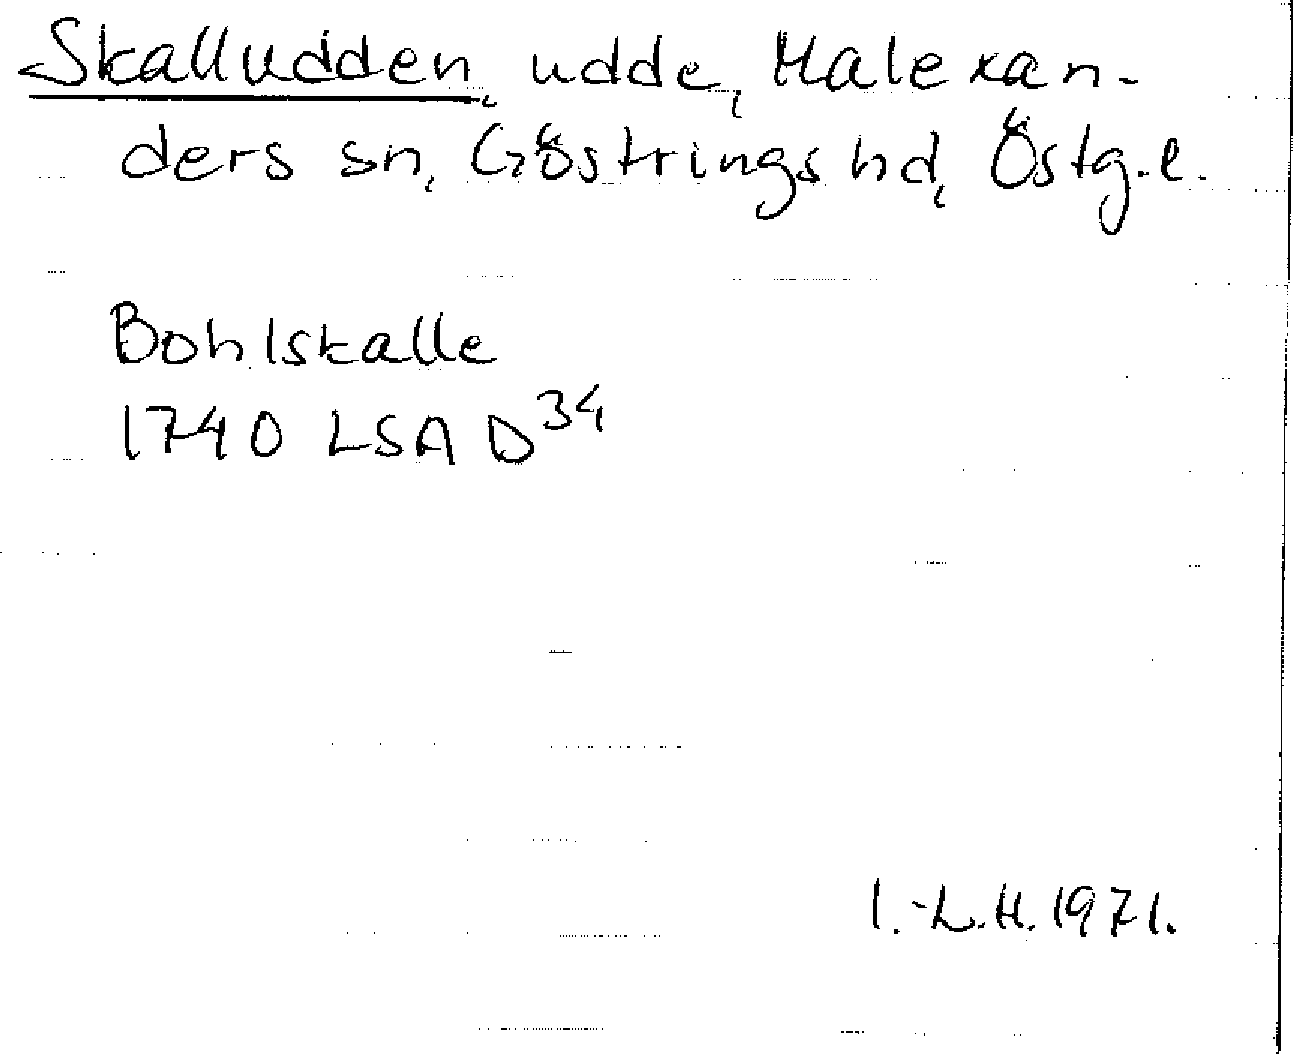 Skalludden, udde, Malexan-
ders sn, Göstrings hd, Östg.l.
Bohlskalle
1740 LSA D³⁴
I.-L.H. 1971.